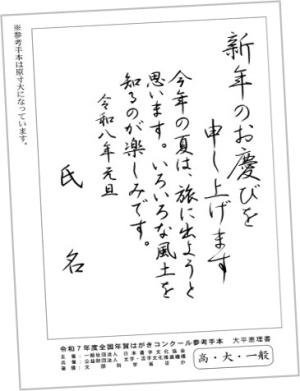 新年のお慶びを
申し上げます
今年の夏は、旅に出ようと
思います。いろいろな風土を
知るのが楽しみです。
令和八年元旦
氏名
※参考手本は原寸大になっています。
令和7年度全国年賀はがきコンクール参考手本 大平恵理書
主催:一般社団法人 日本書字文化協会
共催:公益財団法人 文字・活字文化推進機構
後援:文部科学省ほか
高・大・一般